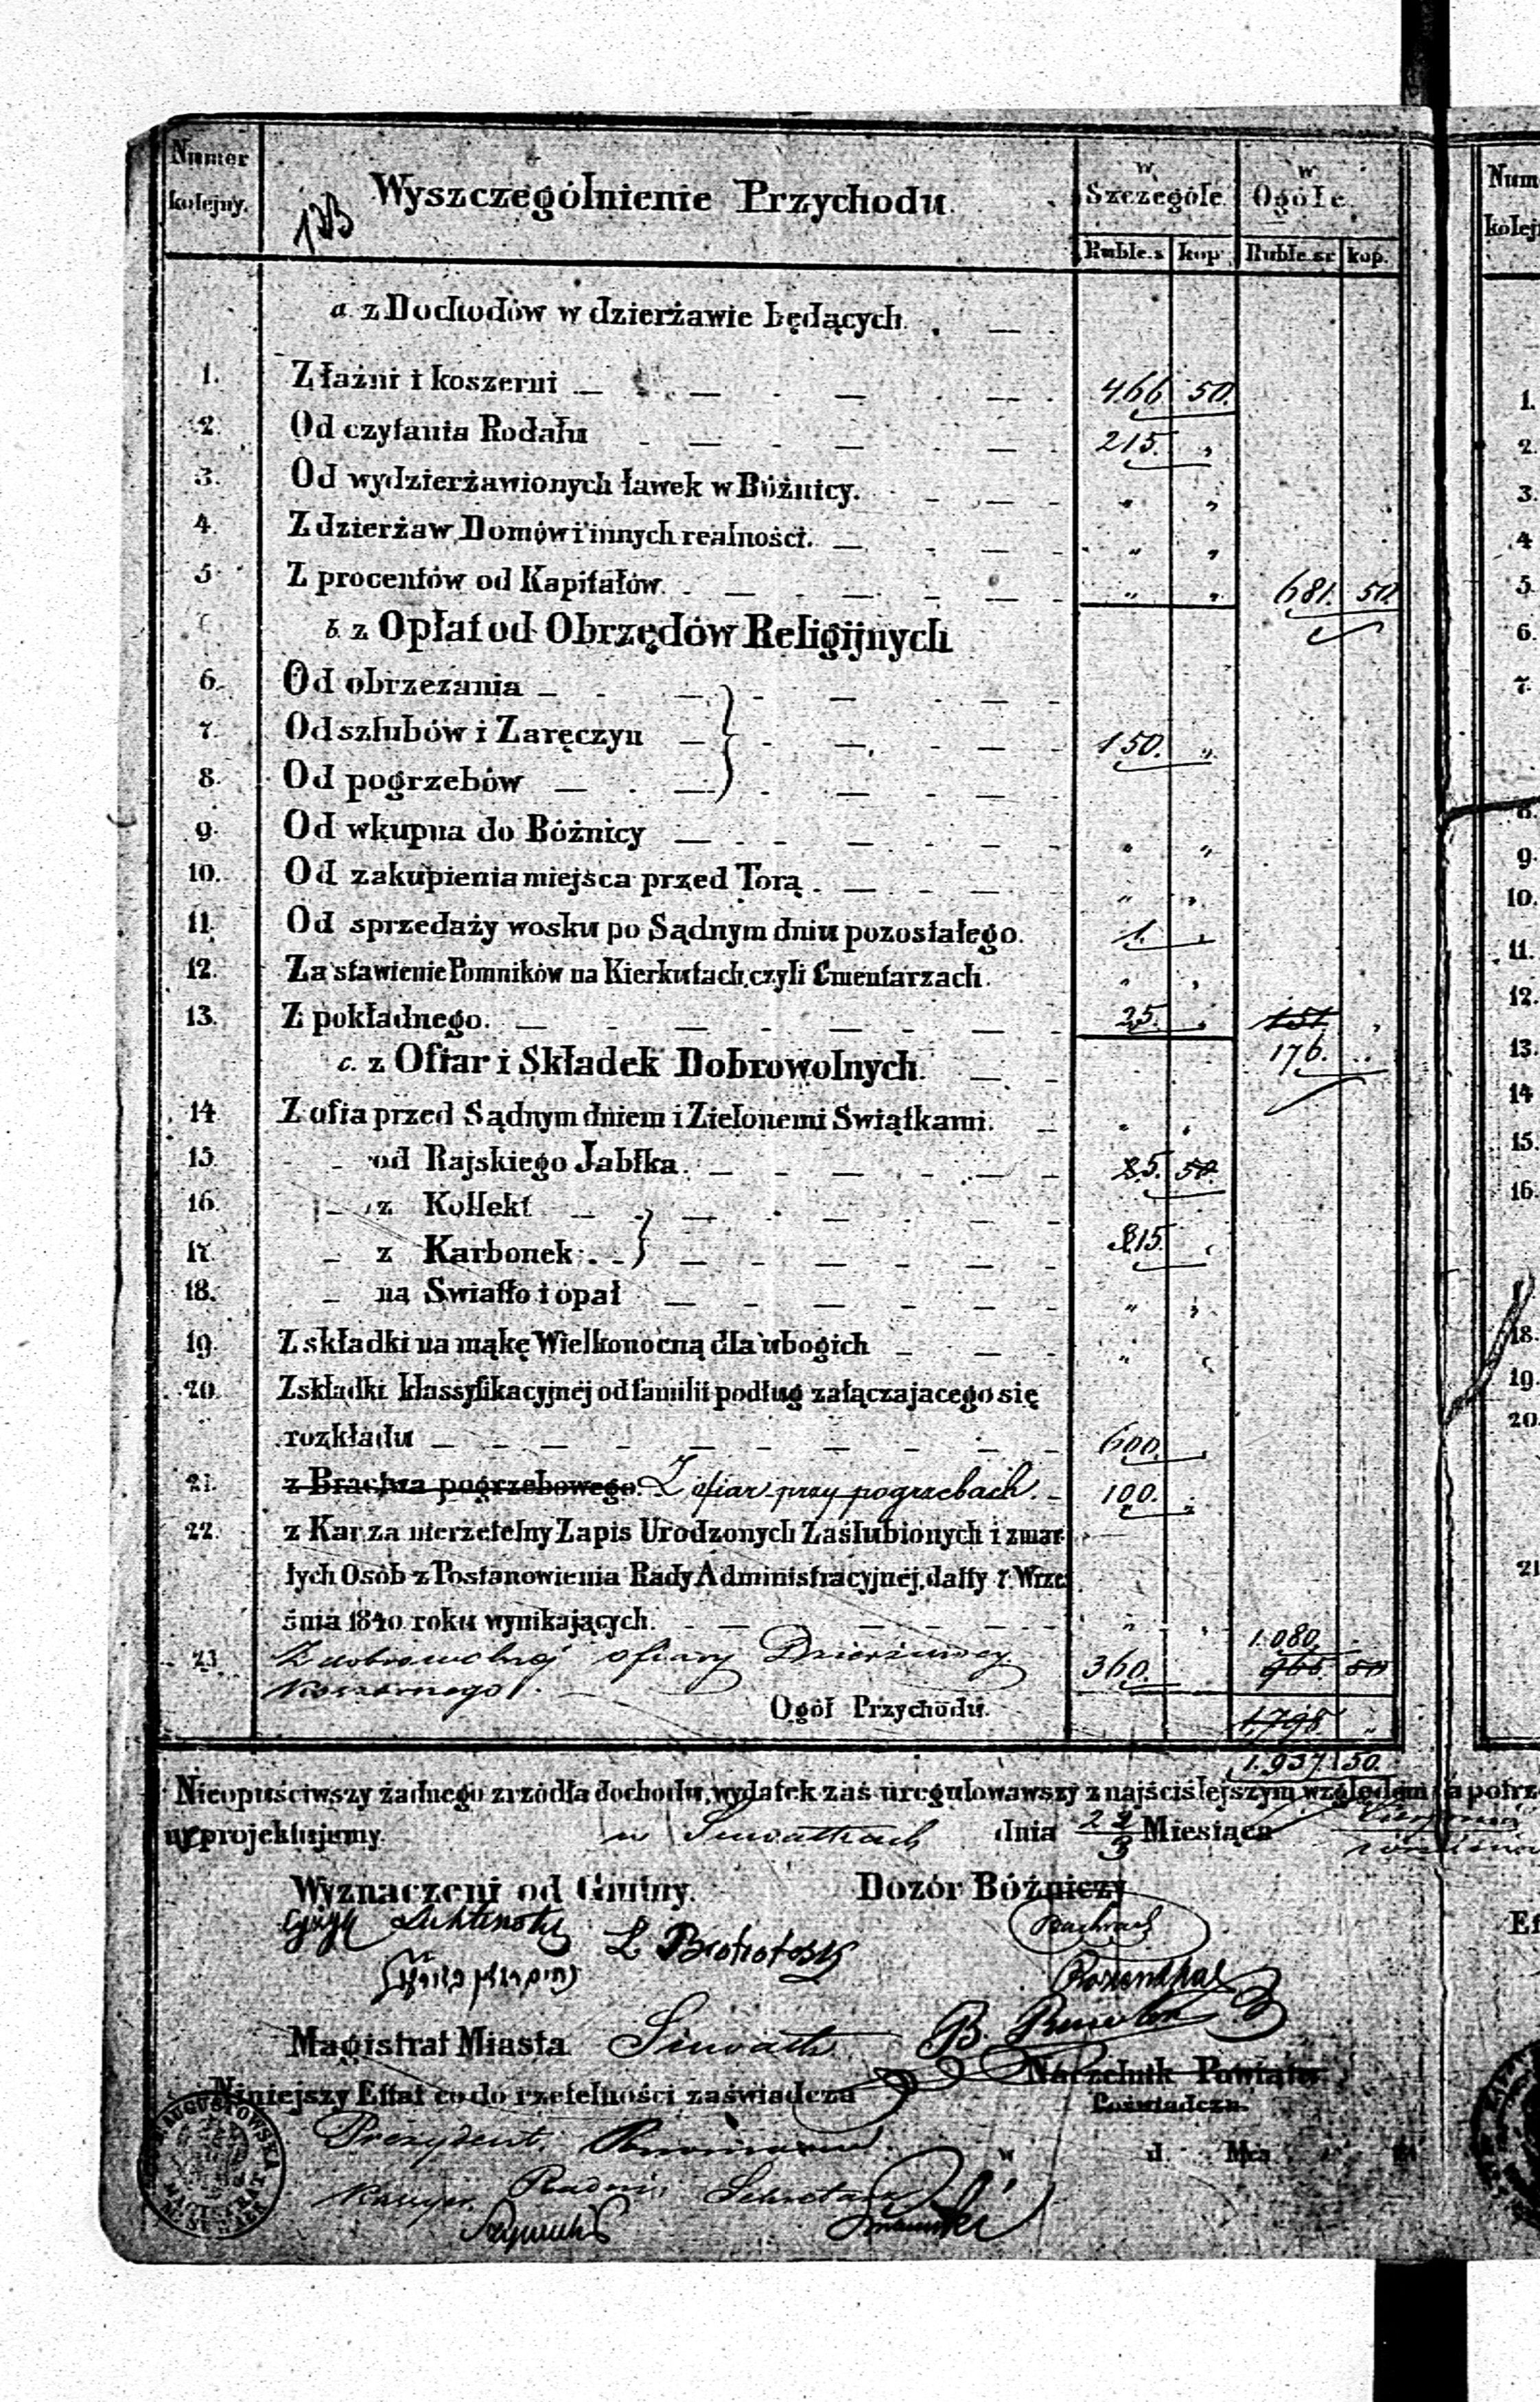 Numer kolejny.
133
Wyszczególnienie Przychodu.
w Szczególe.
w Ogóle.
Ruble.s kop. Ruble.sr kop.
a. z Dochodów w dzierżawie będących.
1. Z łaźni i koszerni 466 50.
2. Od czytania Rodału 215. "
3. Od wydzierżawionych ławek w Bóżnicy. " "
4. Z dzierżaw Domów i innych realności. " "
5. Z procentów od Kapitałów. " " 681. 50
b. z Opłat od Obrzędów Religijnych
6. Od obrzezania
7. Od szlubów i Zaręczyn 150. "
8. Od pogrzebów
9. Od wkupna do Bóżnicy " "
10. Od zakupienia miejsca przed Torą. " "
11. Od sprzedaży wosku po Sądnym dniu pozostałego. 1. "
12. Za stawienie Pomników na Kierkutach, czyli Cmentarzach. " "
13. Z pokładnego. 25. " 151 "
c. z Ofiar i Składek Dobrowolnych. 176. "
14. Z ofia przed Sądnym dniem i Zielonemi Swiątkami. " "
15. - od Rajskiego Jabłka. 5. 50.
16. - z Kollekt
17. - z Karbonek. 15. "
18. - na Swiatło i opał " "
19. Z składki na mąkę Wielkonocną dla ubogich " "
20. Z składki klassyfikacyjnéj od familii podług załączajacego się
rozkładu 600. "
21. z Bractwa pogrzebowego. Z ofiar przy pogrzebach. 100. "
22. z Kar za nierzetelny Zapis Urodzonych Zaślubionych i zmar-
łych Osób z Postanowienia Rady Administracyjnéj, datty 7. Wrze
śnia 1840 roku wynikających. " " 1.080.
23. Z dobrowolnej ofiary Dzierżawcy 360. 965 50
koszernego.
Ogół Przychodu. 1.798 "
1.937 50.
Nieopuściwszy żadnego zrzódła dochodu, wydatek zaś uregulowawszy z najściślejszym względem na potrz
urprojektujemy. w Suwałkach dnia 22/3 Miesiąca
Wyznaczeni od Gminy. Dozór Bóżniczy
Bachrach
Rosenthal
Magistrat Miasta Suwałk
Naczelnik Powiatu
Niniejszy Ettat co do rzetelności zaświadcza
Poświadcza.
Prezydent
w d. Mca
Kassyer Radni Sekretarz
Num
kolej
1.
2.
3.
4
5.
6.
7.
8.
9.
10.
11.
12.
13.
14
15.
16.
18.
19.
20.
21
Et